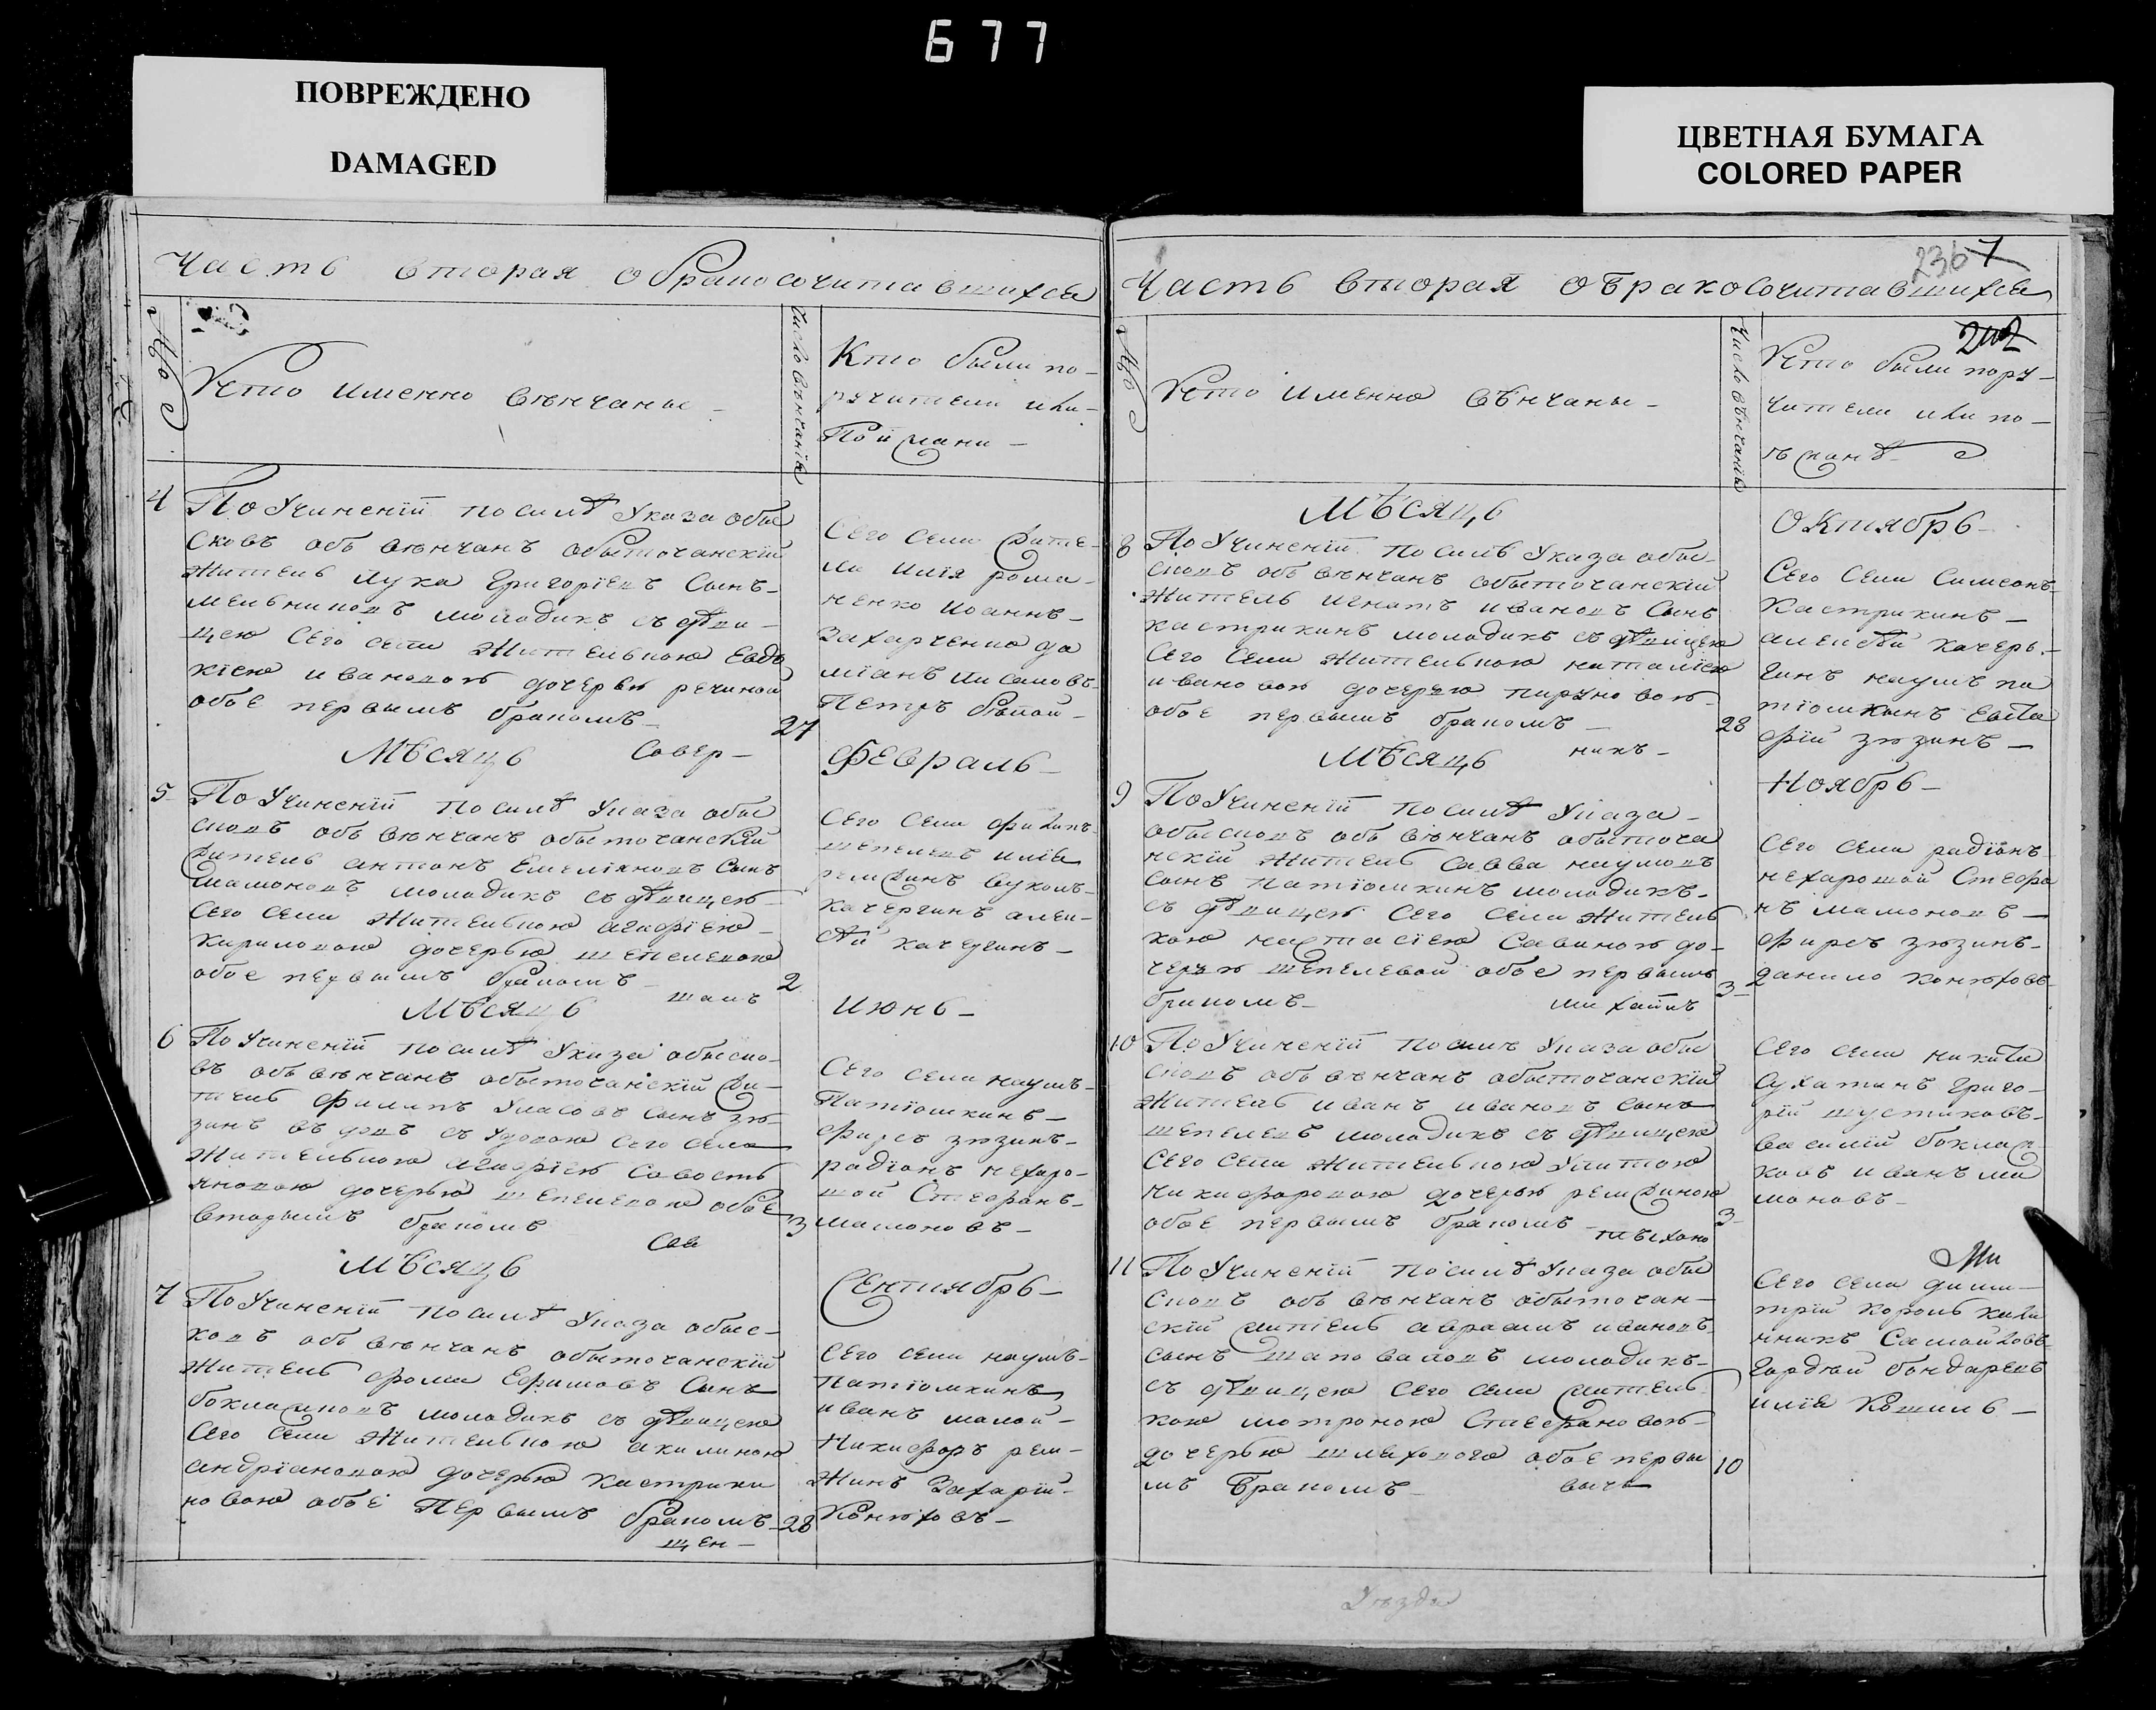 677
ПОВРЕЖДЕНО
DAMAGED
ЦВЕТНАЯ БУМАГА
COLORED PAPER
Часть вторая о бракосочитавшихся
№
Кто именно вѣнчаны
Число вѣнчанія
Кто были по-
ручители или
Поѣзжани
4
По Учиненіи по силѣ Указа обы
сковъ объ вѣнчанъ обыточанскій
житель Лука Григоріевъ Сынъ
мельниковъ молодикъ съ дѣви-
цею Сего села Жителькою Евдо
кіею ивановою дочерью
обое первымъ бракомъ
27
Сего села жите-
ли илія рома-
ненко иоаннъ
Захарченко да
міанъ
Петръ
Мѣсяцъ
Февраль
5
По Учиненіи по силѣ Указа обы
сковъ объ вѣнчанъ обыточанскій
житель антонъ Емеліяновъ Сынъ
мамоновъ молодикъ съ дѣвицею
Сего села Жителькою агафіею
кириловою дочерью шепелевою
обое первымъ бракомъ
2
Сего села филипъ
шепелевъ илія
ремжинъ вуколъ
качергинъ алек-
сѣй качергинъ
Мѣсяцъ
Июнь
6
По Учиненіи по силѣ Указа обыско-
въ объ вѣнчанъ обыточанскій жи-
тель филипъ Уласовъ сынъ зю-
зинъ въдовъ съ удовою Сего села
Жителькою агафіею Савость
яновою дочерью шепелевою обое
вторымъ бракомъ
3
Сего села наумъ
Патіомкинъ
фирсъ зюзинъ
радіонъ нехаро-
шой Стефанъ
мамоновъ
Мѣсяцъ
Сентябрь
7
По Учиненіи по силѣ Указа обыс-
ковъ объ вѣнчанъ обыточанскій
житель фома Ефимовъ Сынъ
бокланковъ молодикъ съ дѣвицею
Сего села Жителькою акилиною
андріановою дочерью кастрики
новою обое Первымъ бракомъ
28
Сего села наумъ
патіомкинъ
иванъ малой
Никифоръ рем-
жинъ Захарій
Конюховъ
236
Часть вторая о бракосочитавшихся
№
Кто именно вѣнчаны
Число вѣнчанія
Кто были пору-
чители или по-
ѣзжанѣ
Мѣсяцъ
Октябрь
8
По Учиненіи по силѣ Указа обы-
сковъ объ вѣнчанъ обыточанскій
житель игнатъ ивановъ Сынъ
кастрикинъ молодикъ съ дѣвицею
Сего Села жителькою наталіею
ивановою дочерью
обое первымъ бракомъ
28
Сего Села Симеонъ
Кастрикинъ
алексѣй качерь-
гинъ наумъ па
тіомкинъ
зюзинъ
Мѣсяцъ
Ноябрь
9
По Учиненіи по силѣ Указа
обысковъ объ вѣнчанъ обыточа
нскій житель Савва наумовъ
Сынъ патіомкинъ молодикъ
съ дѣвицею Сего Села житель
кою настасіею Савиною до-
черью шепелевой обое первымъ
бракомъ
3
Сего Села радіонъ
нехарошой Стефа
нъ мамоновъ
фирсъ зюзинъ
данило конюховъ
10
По Учиненіи по силѣ Указа обы
сковъ объ вѣнчанъ обыточанскій
житель иванъ ивановъ сынъ
шепелевъ молодикъ съ дѣвицею
Сего Села жителькою Улитою
никифоровою дочерью ремжиною
обое первымъ бракомъ
3
Сего Села никита
Сухатинъ григо-
рій шустиковъ
василій боклан
ковъ иванъ ма
моновъ
11
По Учиненіи по силѣ Указа обы
сковъ объ вѣнчанъ обыточан-
скій житель аврамъ ивановъ
сынъ шаповаловъ молодикъ
съ дѣвицею Сего Села житель
кою матроною Стефановою
дочерью обое первы
мъ Бракомъ
10
Сего Села дими-
трій король кали
нникъ Самойловъ
гордѣй бондаревъ
илія Кошиль